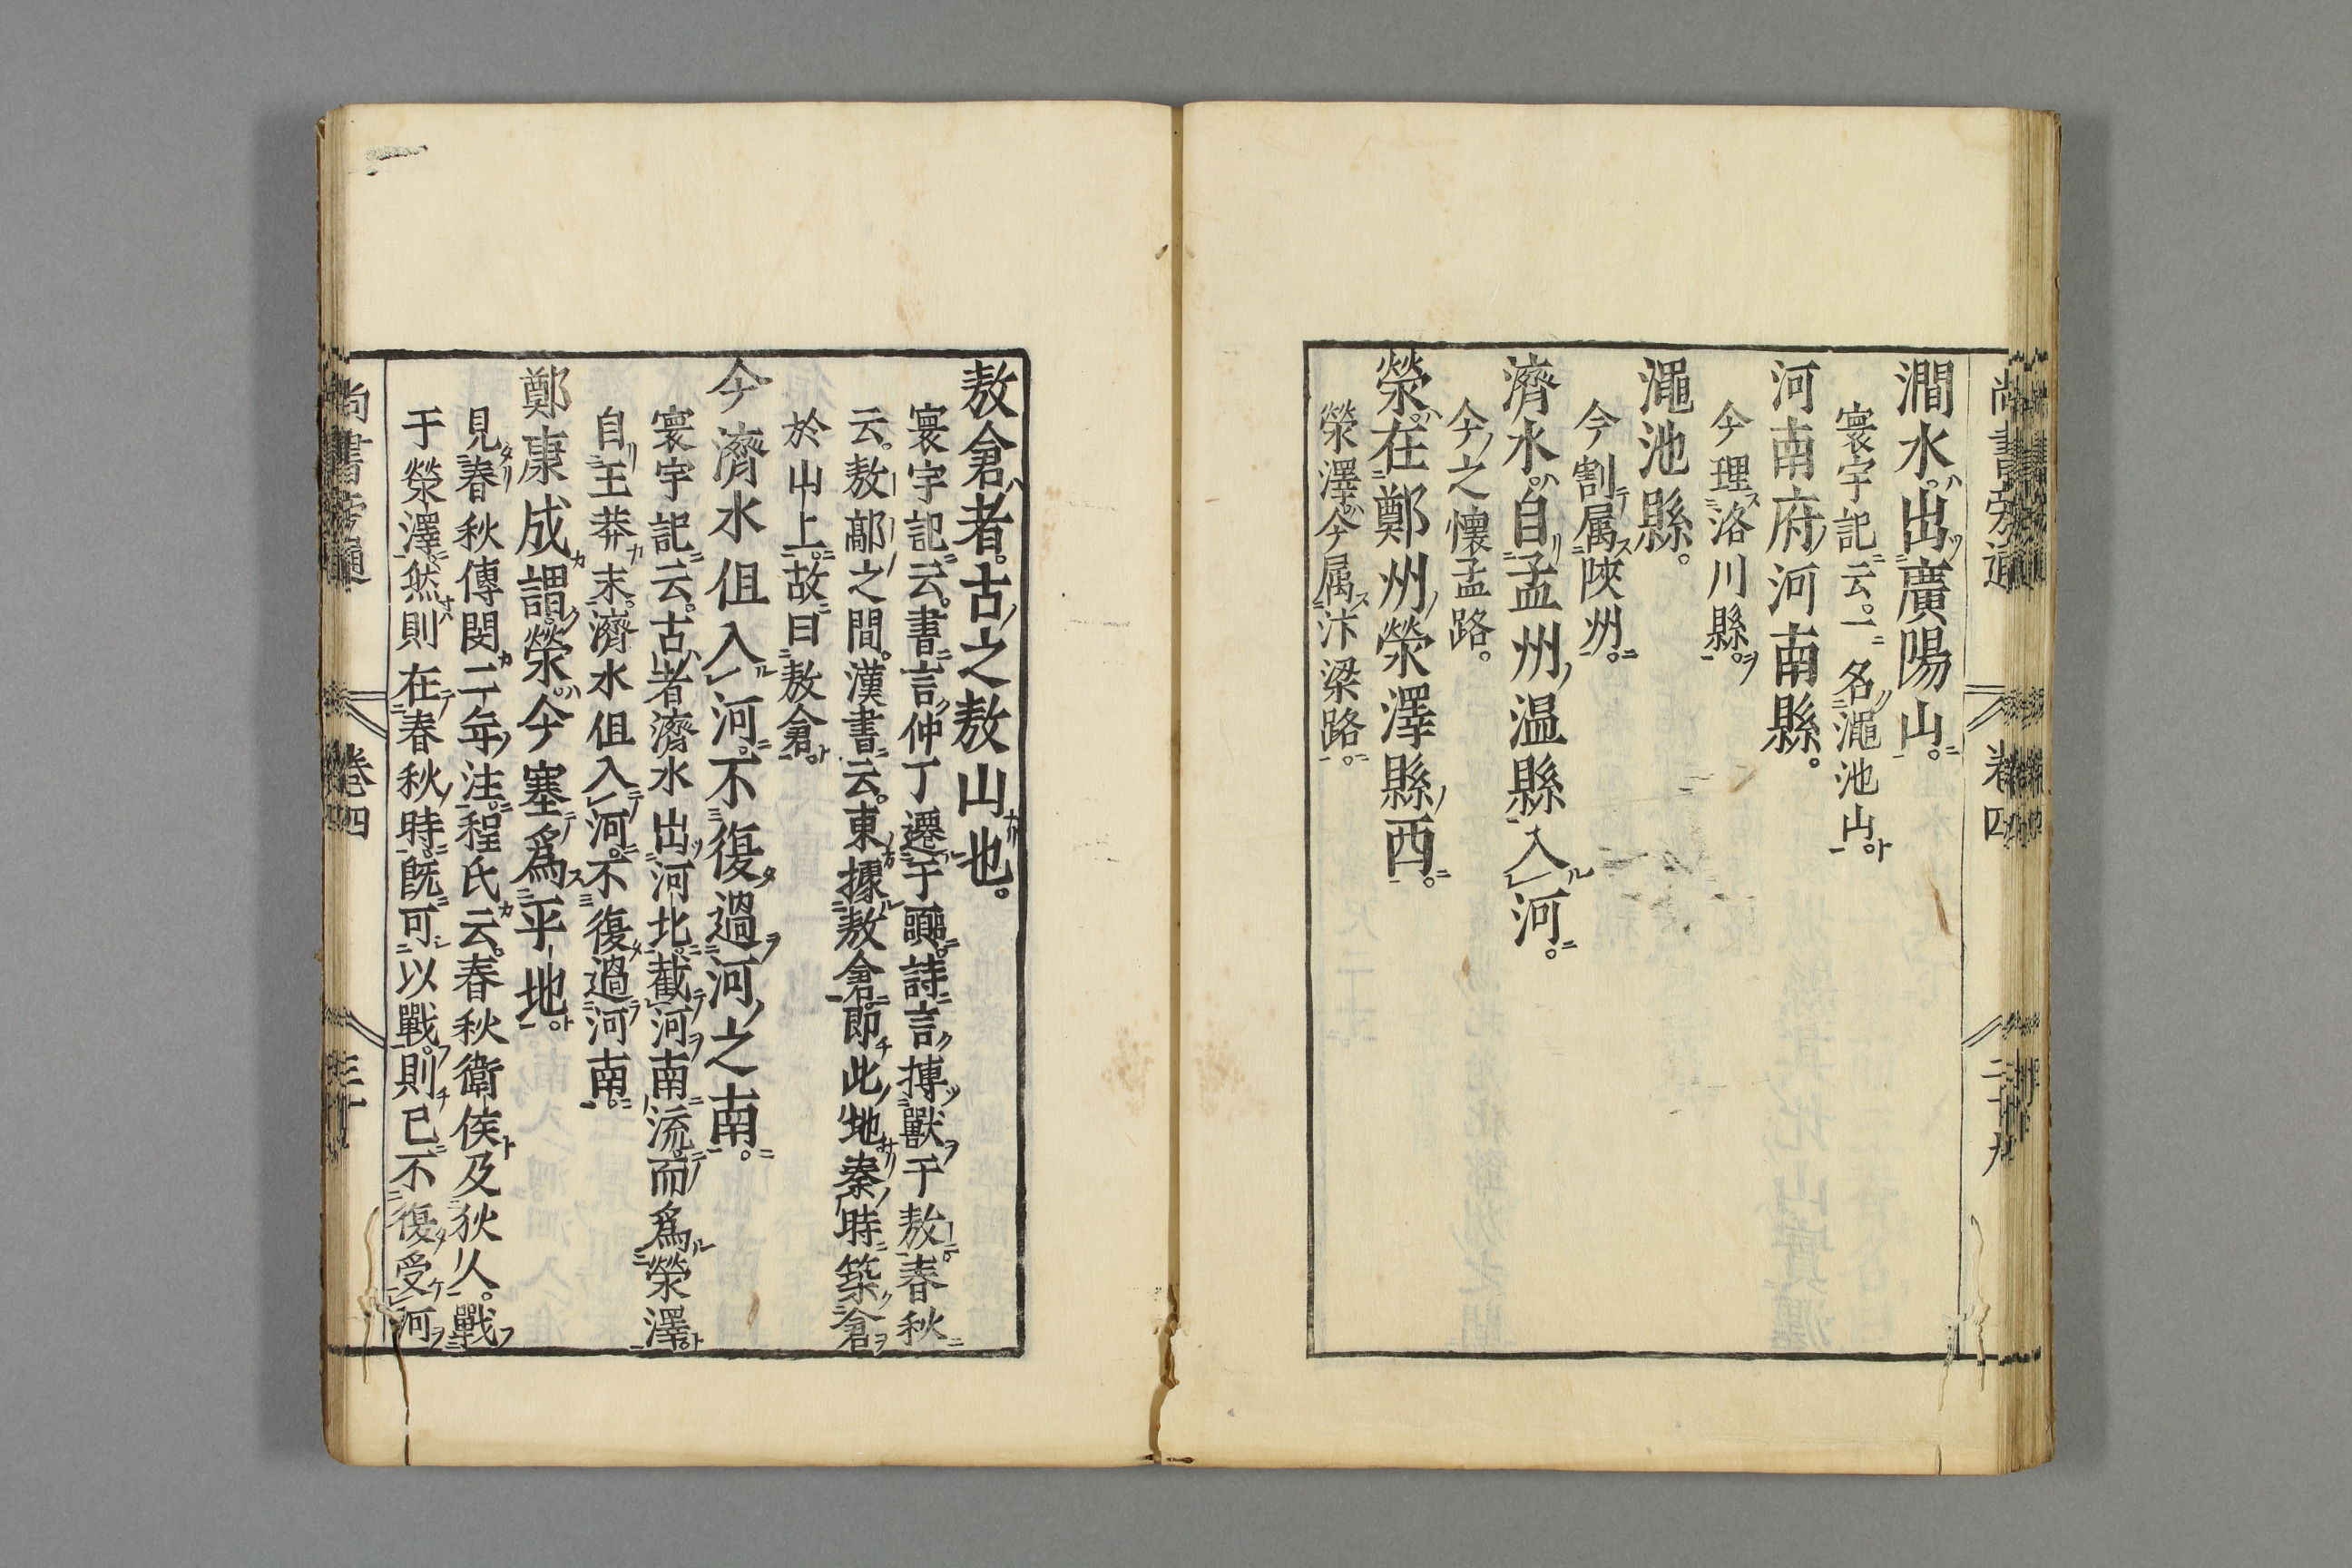 澗水出廣陽山。
寰宇記云。一名澠池山
河南府河南縣。
今理洛川縣。
澠池縣。
今割属陝州。
濟水。自孟州温縣入河。
今之懷孟路。
滎。在鄭州滎澤縣西。
滎澤今属汴梁路。
敖倉者。古之敖山也。
寰宇記云。書言仲丁遷于囂。詩言搏獸于敖。春秋
云。敖鄗之間。漢書云。東據敖倉。即此地。秦時築倉
於山上。故曰敖倉。
今濟水但入河。不復過河之南。
寰宇記云。古者濟水出河北。截河南流。而爲滎澤。
自王莽末。濟水但入河。不復過河南。
鄭康成謂滎。今塞爲平地。
見春秋傳閔二年注。程氏云。春秋衛侯及狄人。戰
于滎澤。然則在春秋時。既可以戰。則已不復受河
尚書旁通 卷四